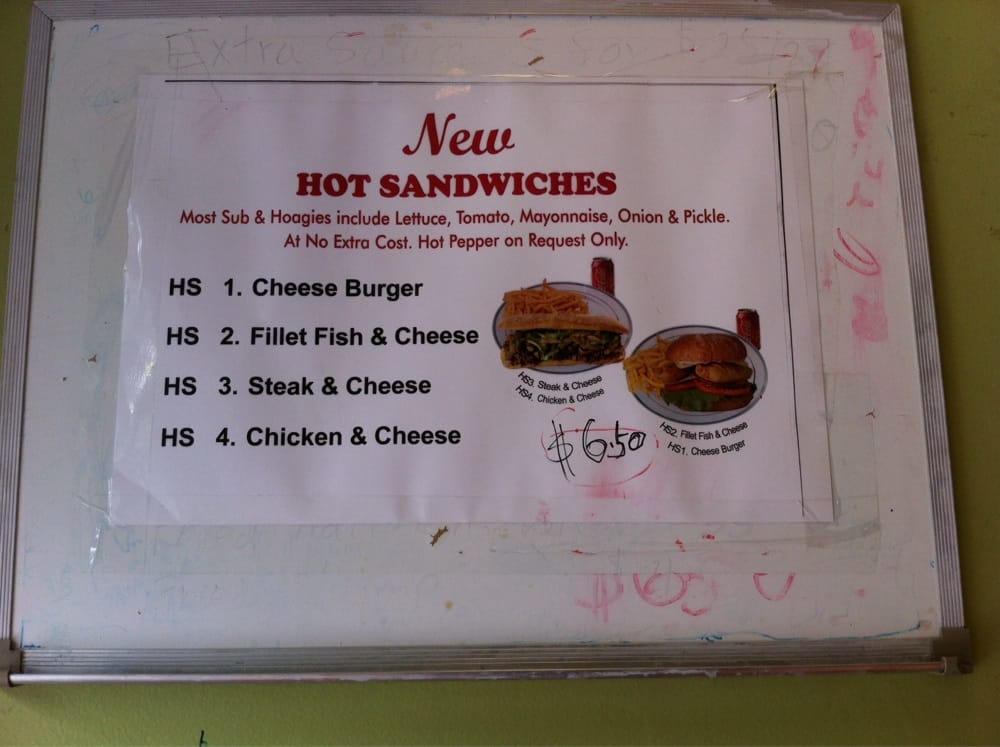 Extra
New
HOT SANDWICHES
Most Sub & Hoagies include Lettuce, Tomato, Mayonnaise, Onion & Pickle.
At No Extra Cost. Hot Pepper on Request Only.
HS 1. Cheese Burger
HS 2. Fillet Fish & Cheese
HS 3. Steak & Cheese
HS 4. Chicken & Cheese
HS3. Steak & Cheese
HS4. Chicken & Cheese
HS2. Fillet Fish & Cheese
HS1. Cheese Burger
$6.50